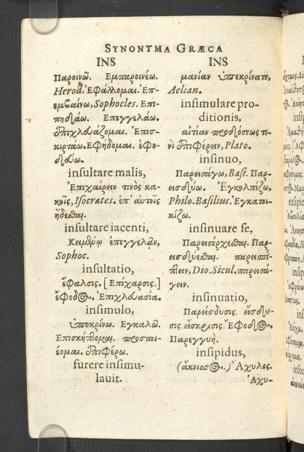 SYNONYMA GRÆCA
INS
Παροινῶ. Εμπαροινέω.
Herod. Ἐφάλλομαι. Ἐπεμβαίνω,
Sophocles. Επιπηδάω.
Επεγγελάω.
Ἐπιχλευάζομαι. Ἐπισκιρτάω.
Εφήδομαι.
insultare malis,
Επιχαίρειν τινὸς κακοῖς,
Isocrates. ἐπ' αυτοῖς
ἥδεσθαι.
insultare iacenti,
Κειμένῳ επεγγελᾷν,
Sophoc.
insultatio,
ἔφαλσις. [Επίχαρσις.]
ἔφοδος. Ἐπιχλευασία.
insimulo,
ὑποκρίνω. Εγκαλῶ.
Επισκήπτομαι.
Ἐπιφέρω.
furere insimulauit.
INS
μανίαν ὑπεκρίνατο,
Aelian.
insimulare proditionis,
αἰτίαν προδόσεως τινὶ
ἐπιφέρειν, Plato.
insinuo,
Παρεισάγω, Bas. Παρεισδύω.
Ἐγκολπίζω,
Philo. Basilius.
insinuare se,
Παρεισέρχεσθαι. Παρεισδύεσθαι.
Dio. Sicul.
insinuatio,
Παρείσδυσις.
Ἔφοδος.
Παρεγγυή.
insipidus,
(ἄκνισος.) Ἄχυλος.
Ἄχυ-